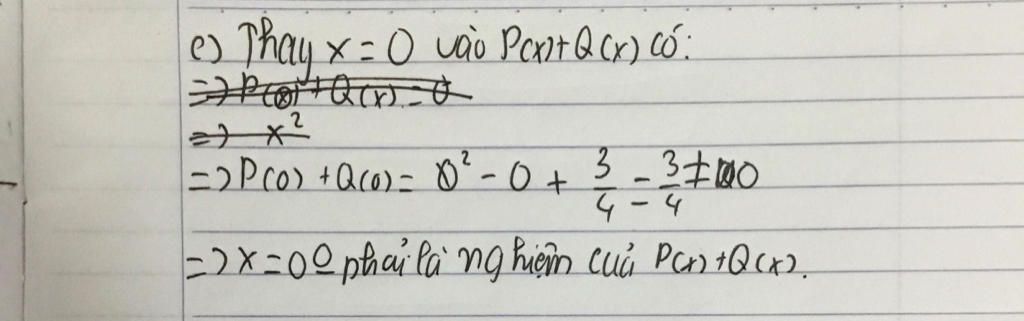 c) Thay x = 0 vào P(x) + Q(x) có:
=> P(x) + Q(x) = 0
=> x²
=> P(0) + Q(0) = 0² - 0 + 3/4 - 3/4 ≠ 0
=> x = 0 o phải là nghiệm của P(x) + Q(x).